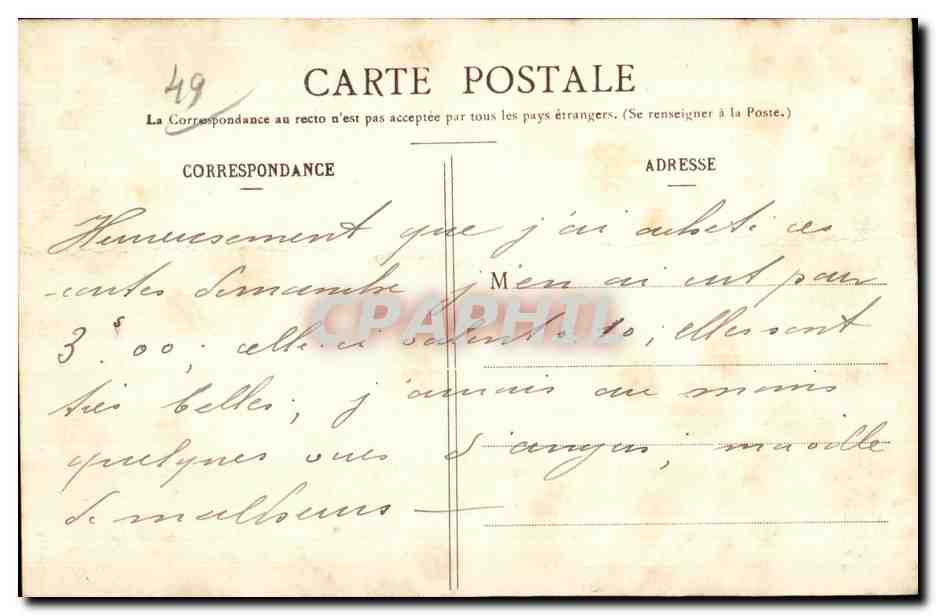 49
CARTE POSTALE
La Correspondance au recto n'est pas acceptée par tous les pays étrangers. (Se renseigner à la Poste.)
CORRESPONDANCE
ADRESSE
M
Heureusement que j'ai acheté ces
cartes dimanche j'en ai eut pour
3.s 00; celle ci valent 0 10; elles sont
très belles; j'aurais au moins
quelques vues d'angers; ma ville
de malheurs —
CPAPHIL